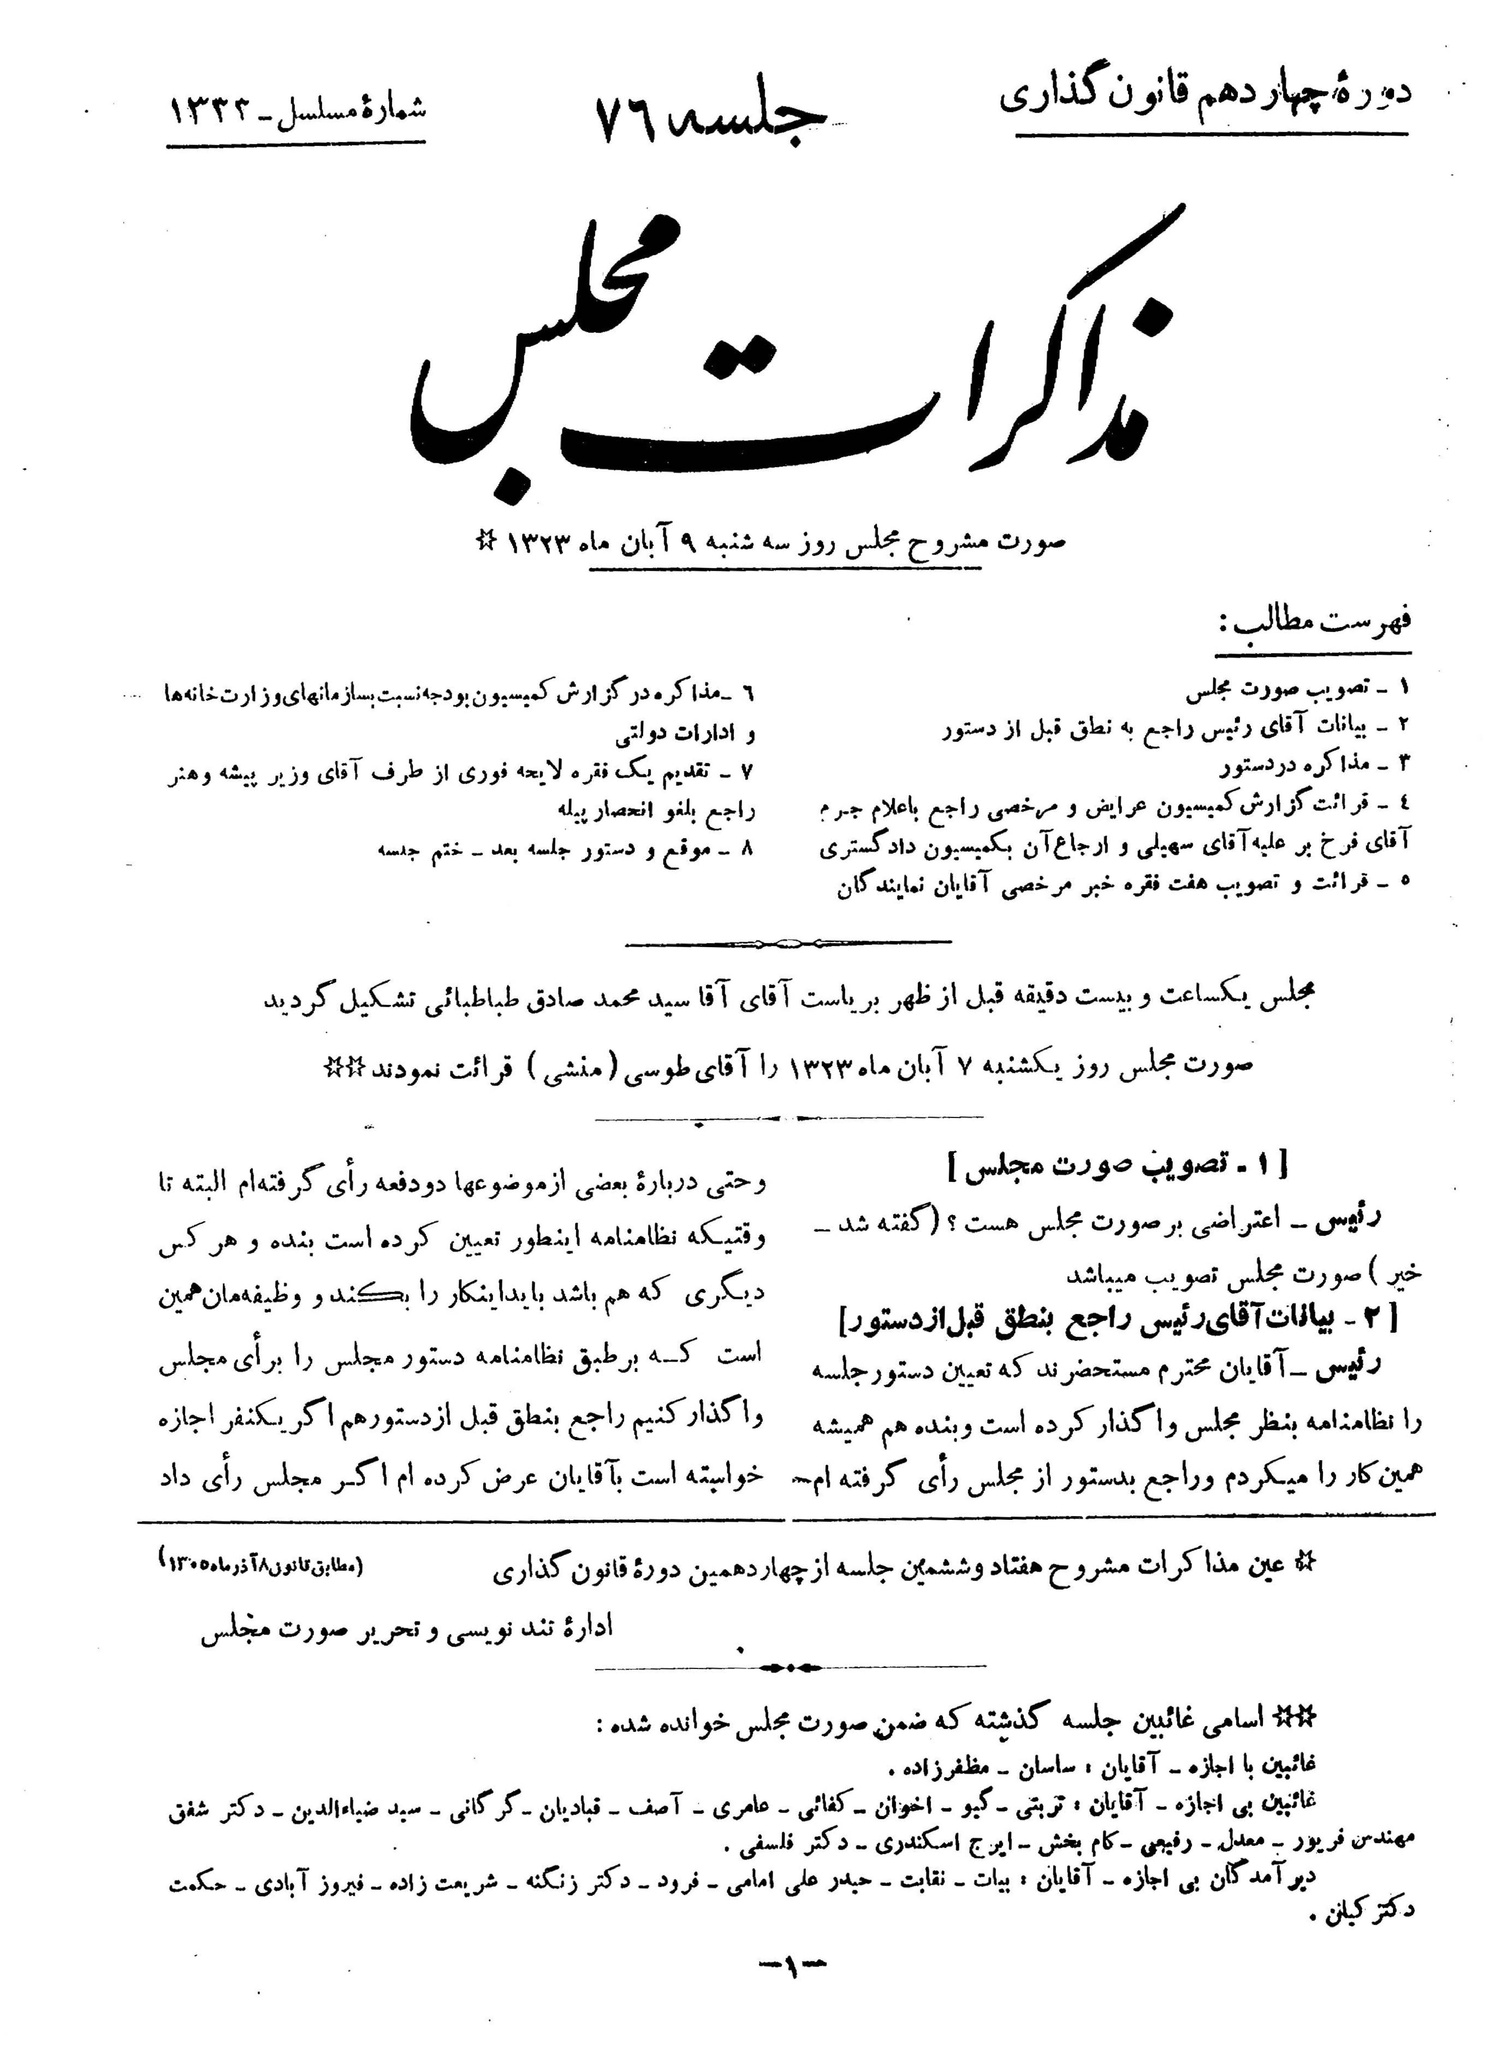 دورهٔ چهاردهم قانون گذاری
جلسه ۷۶
شمارهٔ مسلسل ـ ۱۳۳۲
مذاکرات مجلس
صورت مشروح مجلس روز سه شنبه ۹ آبان ماه ۱۳۲۳ ☆
فهرست مطالب :
۱ ـ تصویب صورت مجلس
۲ ـ بیانات آقای رئیس راجع به نطق قبل از دستور
۳ ـ مذاکره در دستور
٤ ـ قرائت گزارش کمیسیون عرایض و مرخصی راجع باعلام جرم
آقای فرخ بر علیه آقای سهیلی و ارجاع آن بکمیسیون دادگستری
٥ ـ قرائت و تصویب هفت فقره خبر مرخصی آقایان نمایندگان
٦ ـ مذاکره در گزارش کمیسیون بودجه نسبت بسازمانهای وزارت خانه ها
و ادارات دولتی
۷ ـ تقدیم یک فقره لایحه فوری از طرف آقای وزیر پیشه و هنر
راجع بلغو انحصار پیله
۸ ـ موقع و دستور جلسه بعد ـ ختم جلسه
مجلس یکساعت و بیست دقیقه قبل از ظهر بریاست آقای آقا سید محمد صادق طباطبائی تشکیل گردید
صورت مجلس روز یکشنبه ۷ آبان ماه ۱۳۲۳ را آقای طوسی (منشی) قرائت نمودند ☆☆
[ ۱ ـ تصویب صورت مجلس ]
رئیس ـ اعتراضی بر صورت مجلس هست ؟ (گفته شد ـ
خیر ) صورت مجلس تصویب میباشد
[ ۲ ـ بیانات آقای رئیس راجع بنطق قبل از دستور ]
رئیس ـ آقایان محترم مستحضرند که تعیین دستور جلسه
را نظامنامه بنظر مجلس واگذار کرده است و بنده هم همیشه
همین کار را میکردم و راجع بدستور از مجلس رأی گرفته ام
و حتی دربارهٔ بعضی از موضوعها دو دفعه رأی گرفته‌ام البته تا
وقتیکه نظامنامه اینطور تعیین کرده است بنده و هر کس
دیگری که هم باشد باید اینکار را بکند و وظیفه‌مان همین
است که بر طبق نظامنامه دستور مجلس را برأی مجلس
واگذار کنیم راجع بنطق قبل از دستور هم اگر یکنفر اجازه
خواسته است بآقایان عرض کرده ام اگر مجلس رأی داد
☆ عین مذاکرات مشروح هفتاد و ششمین جلسه از چهاردهمین دورهٔ قانون گذاری (مطابق قانون ۸ آذر ماه ۱۳۰۵)
ادارهٔ تند نویسی و تحریر صورت مجلس
☆☆ اسامی غائبین جلسه گذشته که ضمن صورت مجلس خوانده شده :
غائبین با اجازه ـ آقایان : ساسان ـ مظفرزاده .
غائبین بی اجازه ـ آقایان : تربتی ـ گیو ـ اخوان ـ کفائی ـ عامری ـ آصف ـ قبادیان ـ گرگانی ـ سید ضیاءالدین ـ دکتر شفق
مهندس فریور ـ معدل ـ رفیعی ـ کام بخش ـ ایرج اسکندری ـ دکتر فلسفی .
دیر آمدگان بی اجازه ـ آقایان : بیات ـ نقابت ـ حیدر علی امامی ـ فرود ـ دکتر زنگنه ـ شریعت زاده ـ فیروز آبادی ـ حکمت
دکتر کیان .
ـ۱ـ